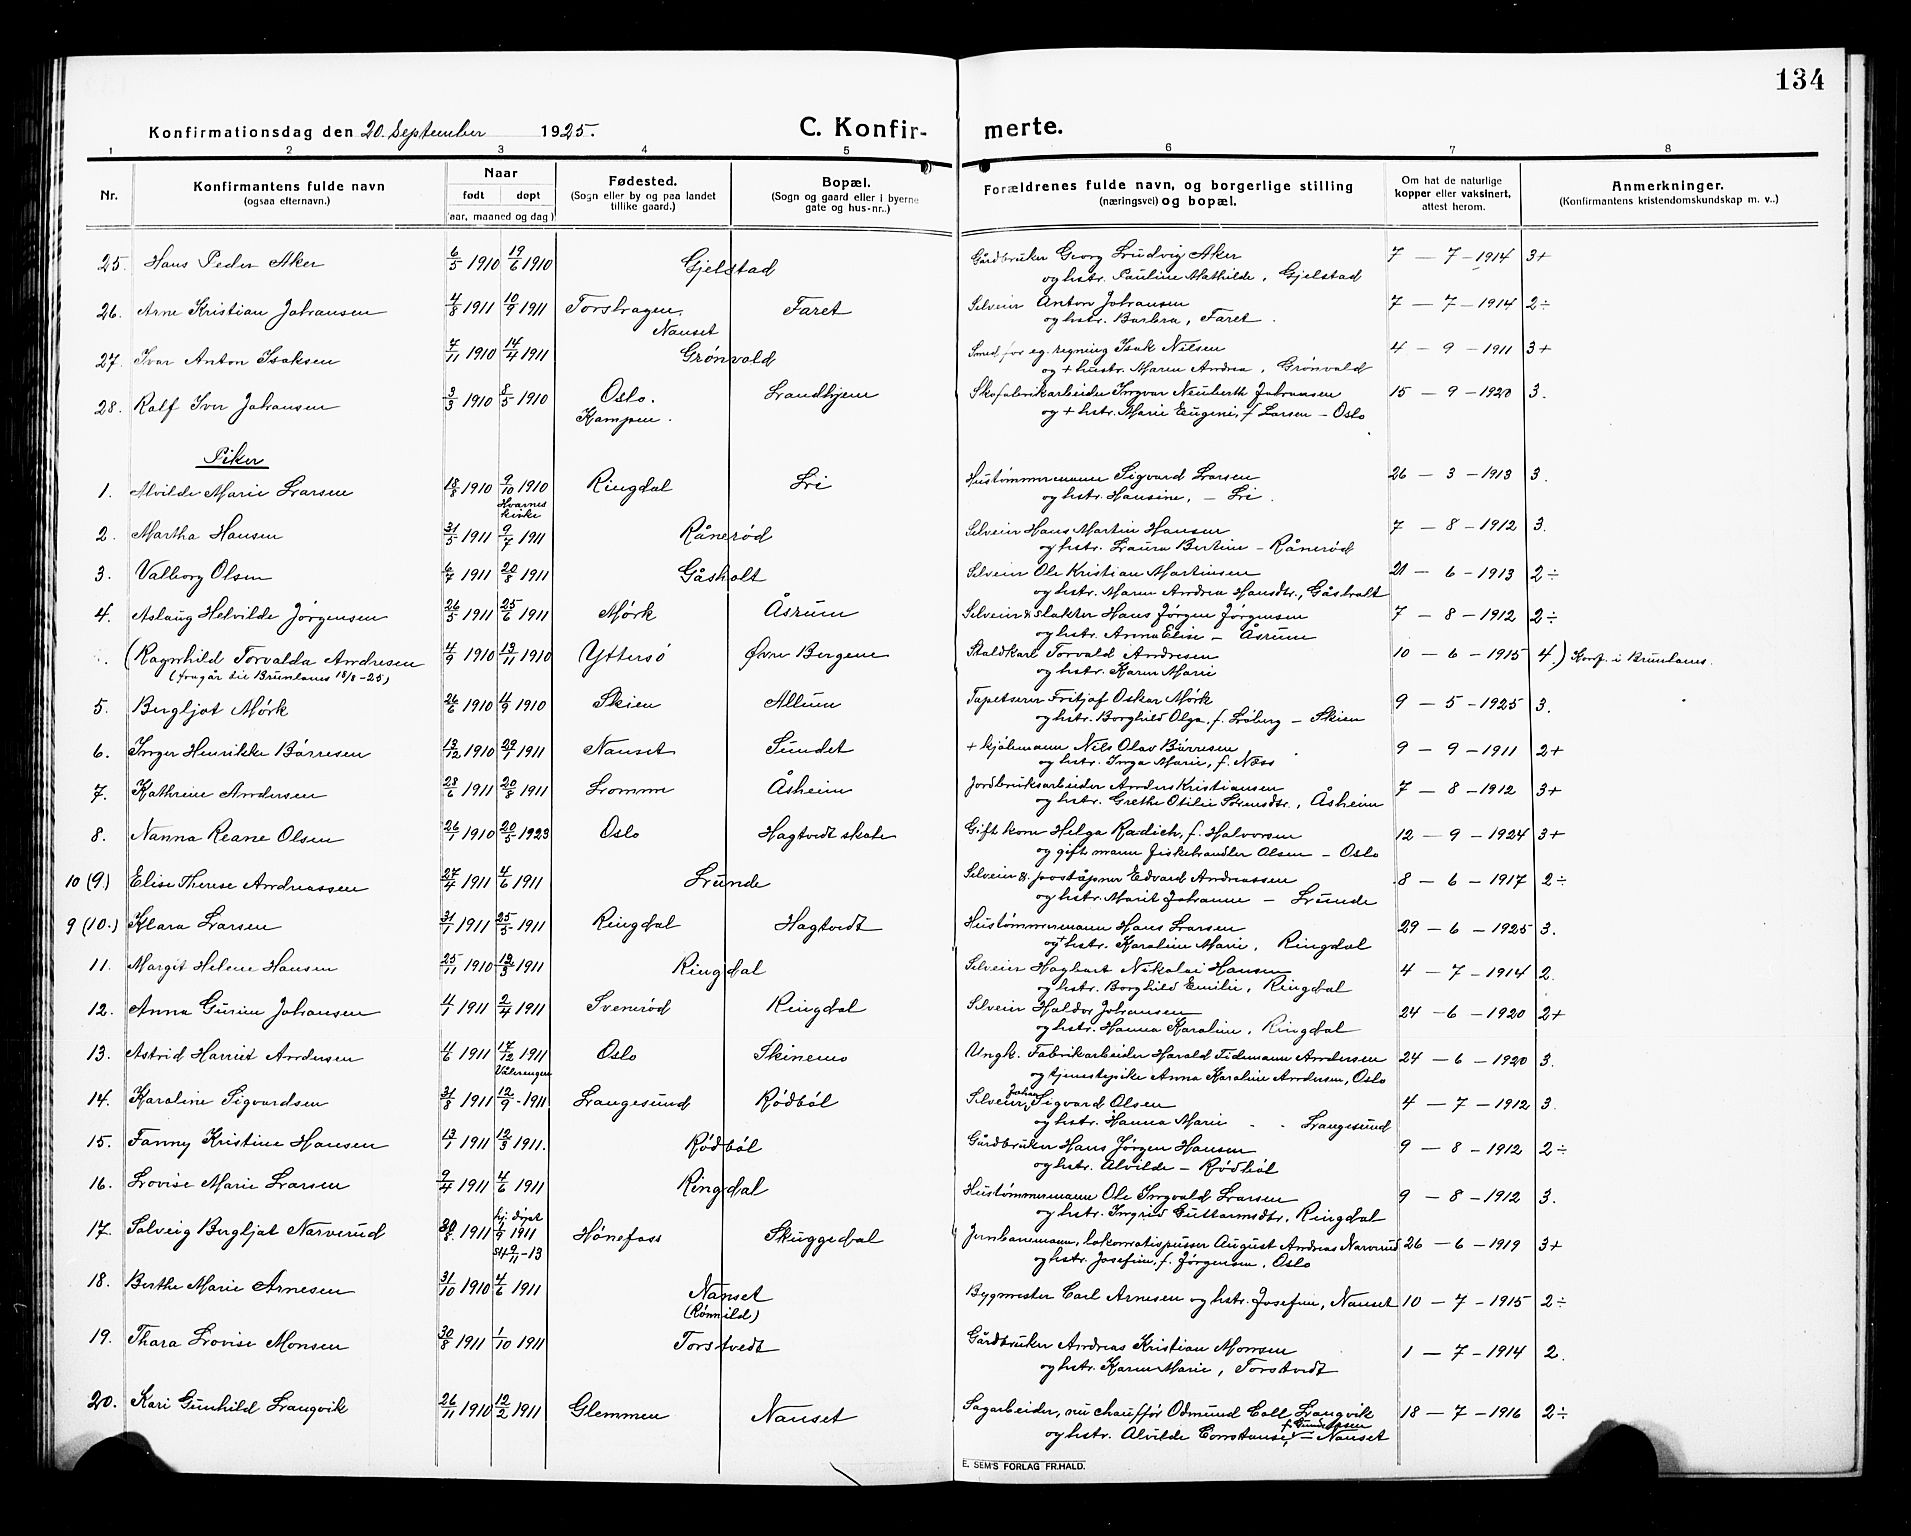 134
Konfirmationsdag den 20. September 1925.
C. Konfir-
merte.
1 2 3 4 5 6 7 8
Nr.
Konfirmantens fulde navn
(ogsaa efternavn.)
Naar
født døpt
(aar, maaned og dag)
Fødested.
(Sogn eller by og paa landet
tillike gaard.)
Bopæl.
(Sogn og gaard eller i byerne
gate og hus-nr..)
Forældrenes fulde navn, og borgerlige stilling
(næringsvei) og bopæl.
Om hat de naturlige
kopper eller vaksinert,
attest herom.
Anmerkninger.
(Konfirmantens kristendomskundskap m. v..)
25. Hans Peder Aker 6/5 1910 19/6 1910 Gjelstad Gårdbruker Georg Ludvig Aker 7 – 7 – 1914 3+
og hstr. Pauline Mathilde, Gjelstad
26. Arne Kristian Johansen 4/8 1911 10/9 1911 Torshagen, Faret Selveier Anton Johansen 7 – 7 – 1914 2÷
Nanset og hstr. Barbra, Faret.
27. Ivar Anton Isaksen 7/11 1910 14/4 1911 Grønvold Smed for eg. regning Isak Nilsen 4 – 9 – 1911 3+
og + hustr. Maren Andrea, Grønvald
28. Ralf Iver Johansen 3/3 1910 8/5 1910 Oslo. Landhjem Skofabrikarbeider Ingvar Neuberth Johansen 15 – 9 – 1920 3.
Kampen. og + hstr. Marie Eugenie, f. Larsen – Oslo
Piker
1. Alvilde Marie Larsen 18/8 1910 9/10 1910 Ringdal Li Hustømmermann Sigvard Larsen 26 – 3 – 1913 3.
Hvarnes
kirke og hstr. Hansine, – Li.
2. Martha Hansen 31/5 1911 9/7 1911 Rånerød Selveier Hans Martin Hansen 7 – 8 – 1912 3.
og hstr. Laura Bertine – Rånerød
3. Valborg Olsen 6/7 1911 20/8 1911 Gåsholt Selveier Ole Kristian Martinsen 21 – 6 – 1913 2÷
og hstr. Maren Andrea Hansdtr., Gåsholt
4. Aslaug Helvilde Jørgensen 26/5 1911 25/6 1911 Mørk Åsrum Selveier & slakter Hans Jørgen Jørgensen 7 – 8 – 1912 2÷
og hstr. Anna Elise – Åsrum
(Ragnhild Torvalda Andresen 4/9 1910 13/11 1910 Yttersö Øvre Bergene Staldkarl Torvald Andresen 10 – 6 – 1915 4.) Konf. i Brunlanes.
(fragår til Brunlanes 18/8–25) og hstr. Karen Marie
5. Bergljot Mørk 26/6 1910 4/9 1910 Skien Allum Tapetserer Fritjof Oskar Mørk 9 – 5 – 1925 3.
og hstr. Borghild Olga, f. Löberg – Skien
6. Inger Henrikke Börresen 13/12 1910 29/1 1911 Nanset Sundet + kjøbmann Nils Olav Börresen 9 – 9 – 1911 2+
og hstr. Inga Marie, f. Næss
7. Kathrine Andersen 28/6 1911 20/8 1911 Lomme Åsheim Jordbruksarbeider Anders Kristiansen 7 – 8 – 1912 3+
og hstr. Grethe Otilie Sörensdtr., Åsheim
8. Nanna Reane Olsen 26/1 1910 20/5 1923 Oslo Hagtvedt skole Gift kone Helga Radich, f. Halvorsen 12 – 9 – 1924 3+
og gift mann fiskehandler Olsen – Oslo
10 (9.) Elise Therese Andreassen 27/4 1911 4/6 1911 Lunde Selveier & poståpner Edvard Andreassen 8 – 6 – 1917 2÷
og hstr. Marit Johanne – Lunde
9 (10.) Klara Larsen 31/1 1911 25/5 1911 Ringdal Hagtvedt Hustømmermann Hans Larsen 29 – 6 – 1925 3.
og + hstr. Karoline Marie, Ringdal
11. Margit Helene Hansen 25/11 1910 12/3 1911 Ringdal Selveier Hagbart Nikolai Hansen 4 – 7 – 1914 2.
og hstr. Borghild Emilie, Ringdal
12. Anna Gurine Johansen 4/1 1911 2/4 1911 Svenerød Ringdal Selveier Haldor Johansen 24 – 6 – 1920 2+
og hstr. Hanna Karoline, Ringdal
13. Astrid Harriet Andersen 4/6 1911 17/12 1911 Oslo Skinemo Ungk. Fabrikarbeider Harald Tidemann Andersen 24 – 6 – 1920 3.
Vålerengen og tjenestepike Anna Karoline Andersen, Oslo
14. Karoline Sigvardsen 31/8 1911 12/9 – 1911 Langesund Rødböl Selveier Johan Sigvard Olsen 4 – 7 – 1912 3.
og hstr. Hanna Marie Langesund
15. Fanny Kristine Hansen 13/1 1911 12/3 1911. Rødböl Gårdbruker Hans Jørgen Hansen 9 – 8 – 1912 2÷
og hstr. Alvilde – Rødböl
16. Lovise Marie Larsen 9/4 1911 4/6 1911 Ringdal Hustømmermann Ole Ingvald Larsen 9 – 8 – 1912 3.
og hstr. Ingrid Guttormsdtr., Ringdal
17. Solveig Bergljot Narverud 30/8 1911 hj. döpt 1/9 1911 Hönefoss Skuggedal Jernbanemann, lokomotivpusser August Andreas Narverud 26 – 6 – 1919 3+
st 9/11–13 og hstr. Josefine, f. Jørgensen, Oslo
18. Berthe Marie Arnesen 31/10 1910 4/6 1911 Nanset Bygmester Carl Arnesen og hstr. Josefine, Nanset 10 – 7 – 1915 2÷
(Rönnild)
19. Thora Lovise Monsen 30/8 1911 1/10 1911 Torstvedt Gårdbruker Andreas Kristian Monsen 1 – 7 – 1914 2.
og hstr. Karen Marie, Torstvedt
20. Kari Gunhild Langvik 26/11 1910 12/2 1911 Glemmen Nanset Sagarbeider, nu chauffør Odmund Coll Langvik 18 – 7 – 1916 2÷
og hstr. Alvilde Constanse, f. Gundersen – Nanset
E. SEM'S FORLAG FR.HALD.